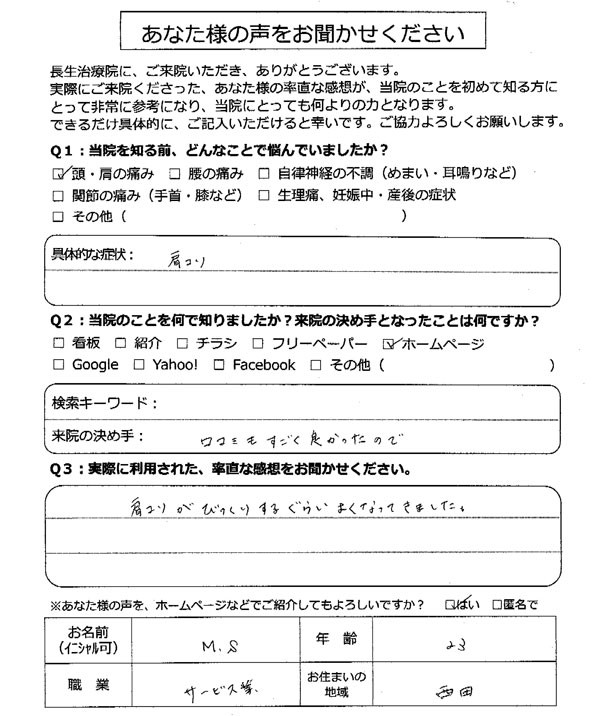 あなた様の声をお聞かせください
長生治療院に、ご来院いただき、ありがとうございます。
実際にご来院くださった、あなた様の率直な感想が、当院のことを初めて知る方に
とって非常に参考になり、当院にとっても何よりの力となります。
できるだけ具体的に、ご記入いただけると幸いです。ご協力よろしくお願いします。
Q1：当院を知る前、どんなことで悩んでいましたか？
☑頭・肩の痛み □ 腰の痛み □ 自律神経の不調（めまい・耳鳴りなど）
□ 関節の痛み（手首・膝など） □ 生理痛、妊娠中・産後の症状
□ その他（ ）
具体的な症状： 肩コリ
Q2：当院のことを何で知りましたか？来院の決め手となったことは何ですか？
□ 看板 □ 紹介 □ チラシ □ フリーペーパー ☑ホームページ
□ Google □ Yahoo! □ Facebook □ その他（ ）
検索キーワード：
来院の決め手： 口コミもすごく良かったので
Q3：実際に利用された、率直な感想をお聞かせください。
肩コリがびっくりするぐらいよくなってきました。
※あなた様の声を、ホームページなどでご紹介してもよろしいですか？ ☑はい □匿名で
お名前 M.S 年 齢 23
（ｲﾆｼｬﾙ可）
職 業 サービス業 お住まいの
地域 西田